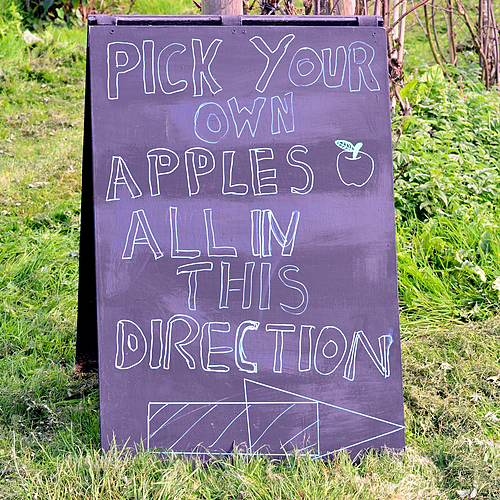 PICK YOUR
OWN
APPLES
ALL IN
THIS
DIRECTION